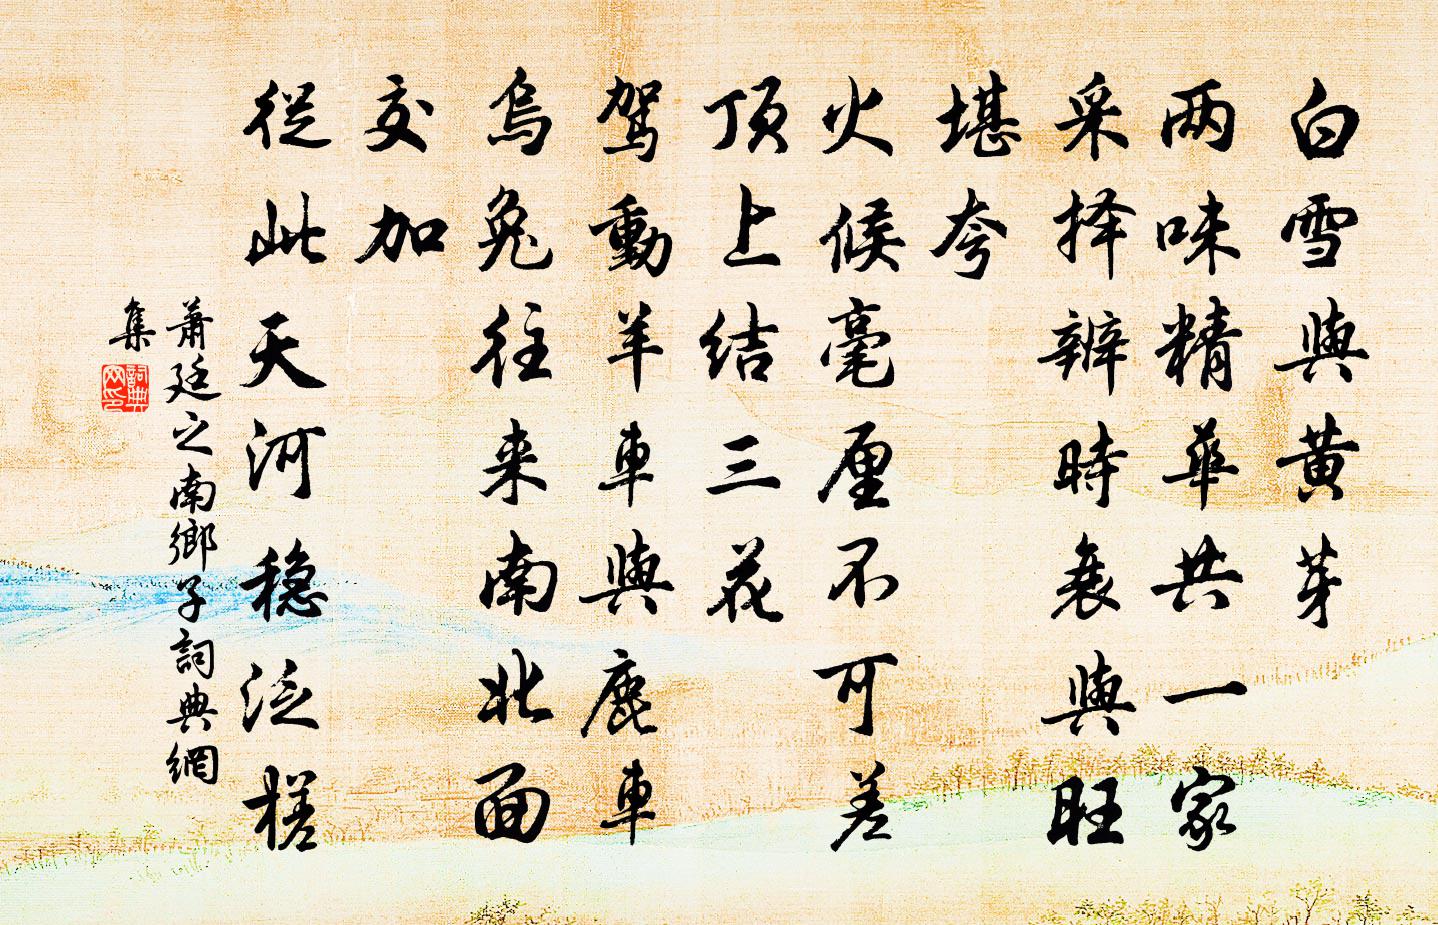 白雪與黄芽
两味精華共一家
采择辨時衰與旺
堪夸
火候毫厘不可差
頂上结三花
駕動羊車與鹿車
烏兔往来南北面
交加
從此天河稳泛槎
萧廷之南鄉子詞典網
集
詞典
网印